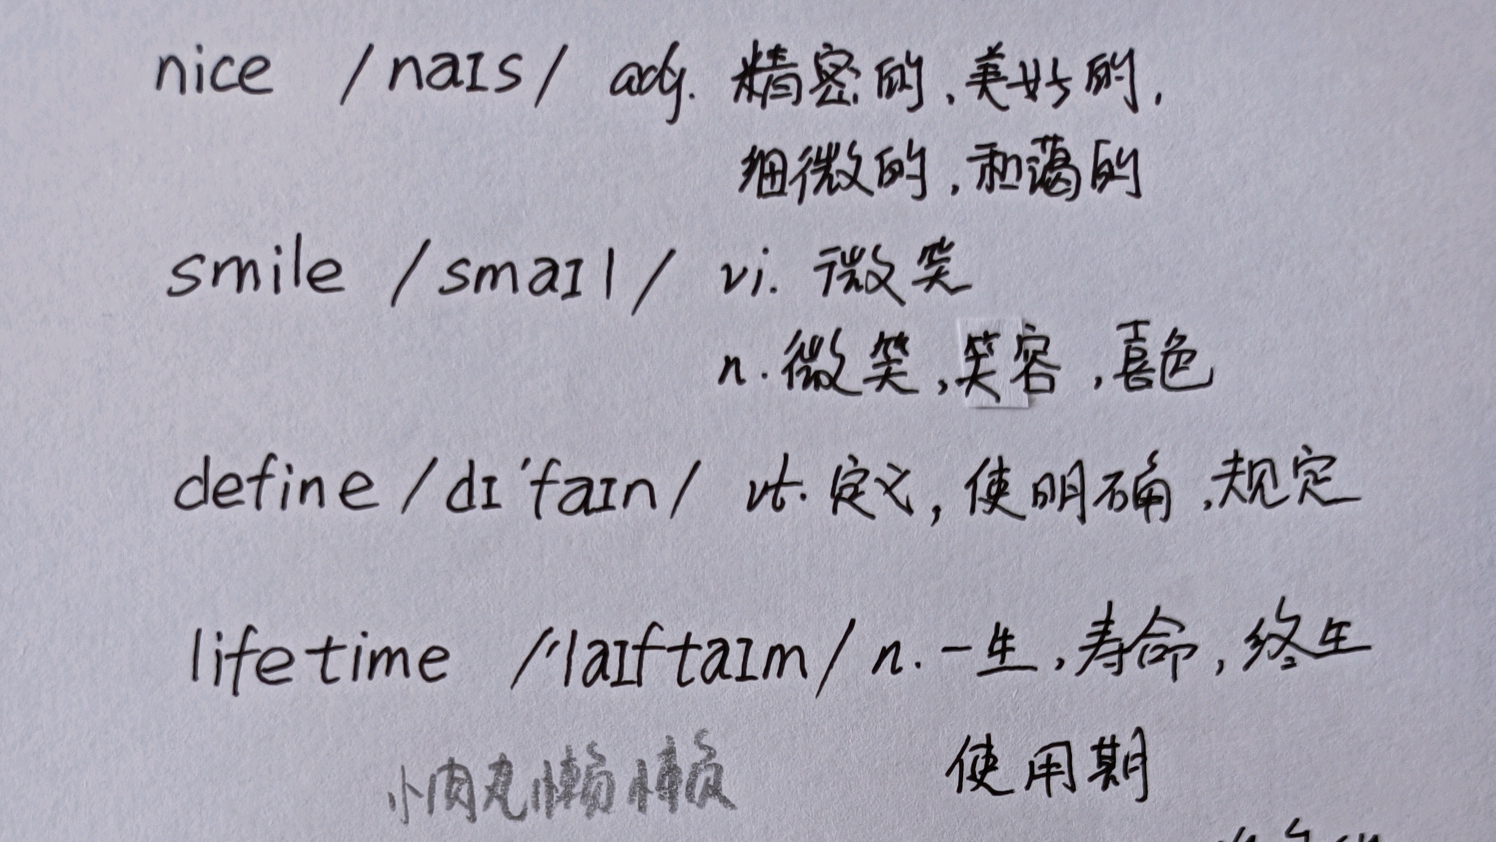 nice /naɪs/ adj. 精密的,美妙的,
细微的,和蔼的
smile /smaɪl/ vi. 微笑
n. 微笑,笑容,喜色
define /dɪ'faɪn/ vt. 定义,使明确,规定
lifetime /'laɪftaɪm/ n. 一生,寿命,终生
使用期
小肉丸懒懒